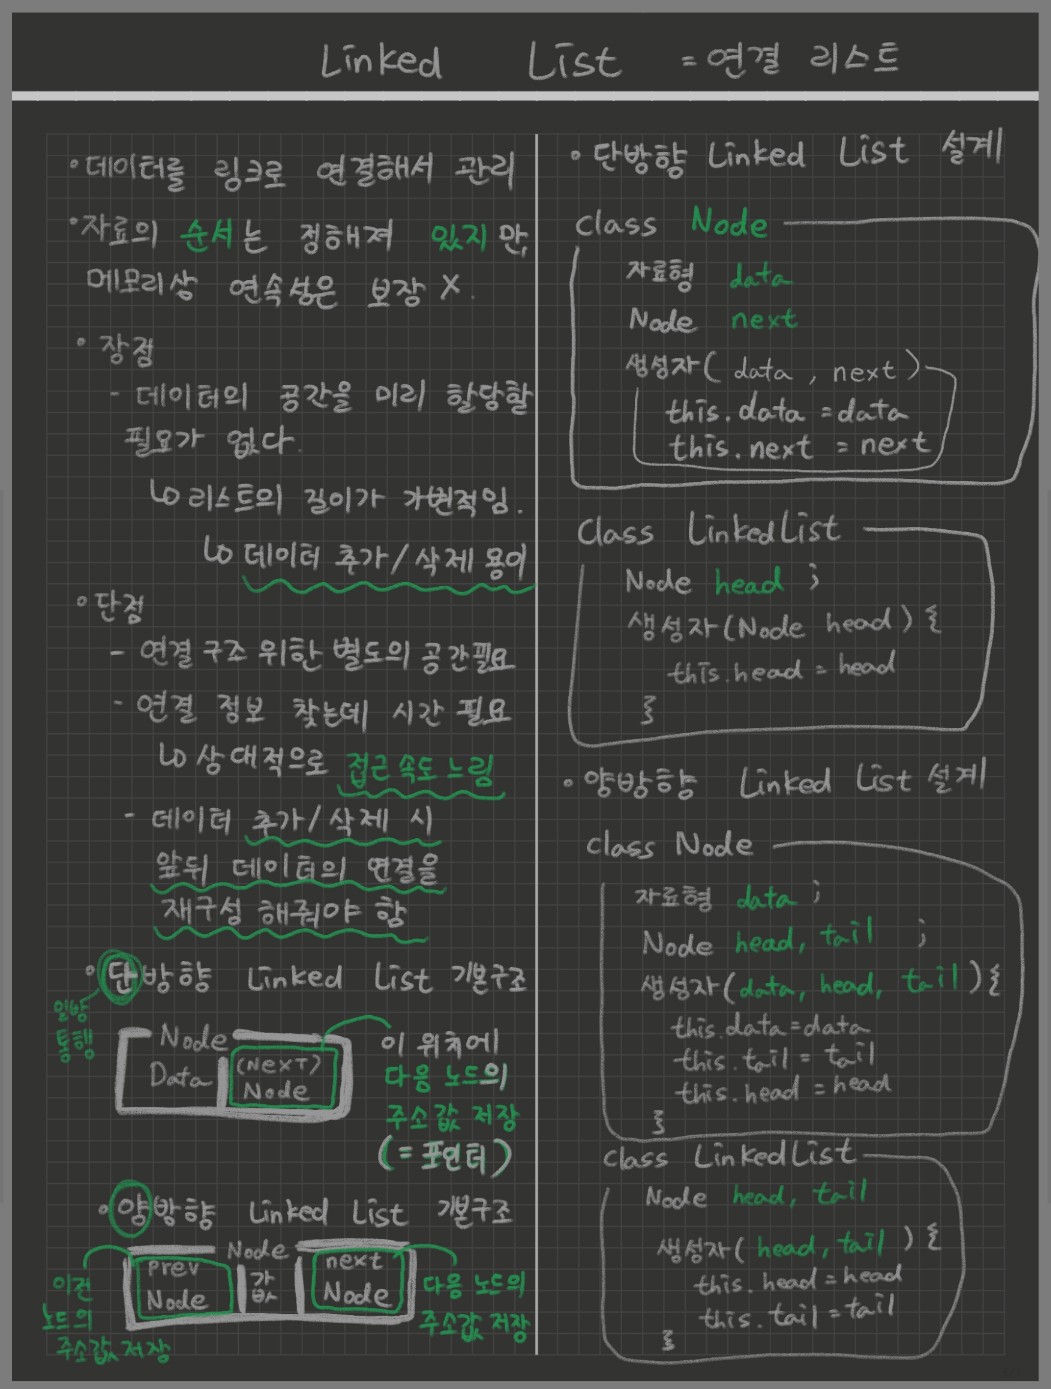 Linked List = 연결 리스트
• 데이터를 링크로 연결해서 관리
• 자료의 순서는 정해져 있지만,
메모리상 연속성은 보장 X.
• 장점
- 데이터의 공간을 미리 할당할
필요가 없다.
↳ 리스트의 길이가 가변적임.
↳ 데이터 추가/삭제 용이
• 단점
- 연결 구조 위한 별도의 공간필요
- 연결 정보 찾는데 시간 필요
↳ 상대적으로 접근 속도 느림
- 데이터 추가/삭제 시
앞뒤 데이터의 연결을
재구성 해줘야 함
• 단방향 Linked List 기본구조
일방
통행
Node
Data
(NexT)
Node
이 위치에
다음 노드의
주소값 저장
(=포인터)
• 양방향 Linked List 기본구조
Node
prev
Node
값
next
Node
이전
노드의
주소값 저장
다음 노드의
주소값 저장
• 단방향 Linked List 설계
class Node
자료형 data
Node next
생성자( data , next )
this.data = data
this.next = next
Class LinkedList
Node head ;
생성자(Node head) {
this.head = head
}
• 양방향 Linked List 설계
class Node
자료형 data ;
Node head, tail ;
생성자(data, head, tail) {
this.data = data
this.tail = tail
this.head = head
}
class LinkedList
Node head, tail
생성자( head, tail ) {
this.head = head
this.tail = tail
}